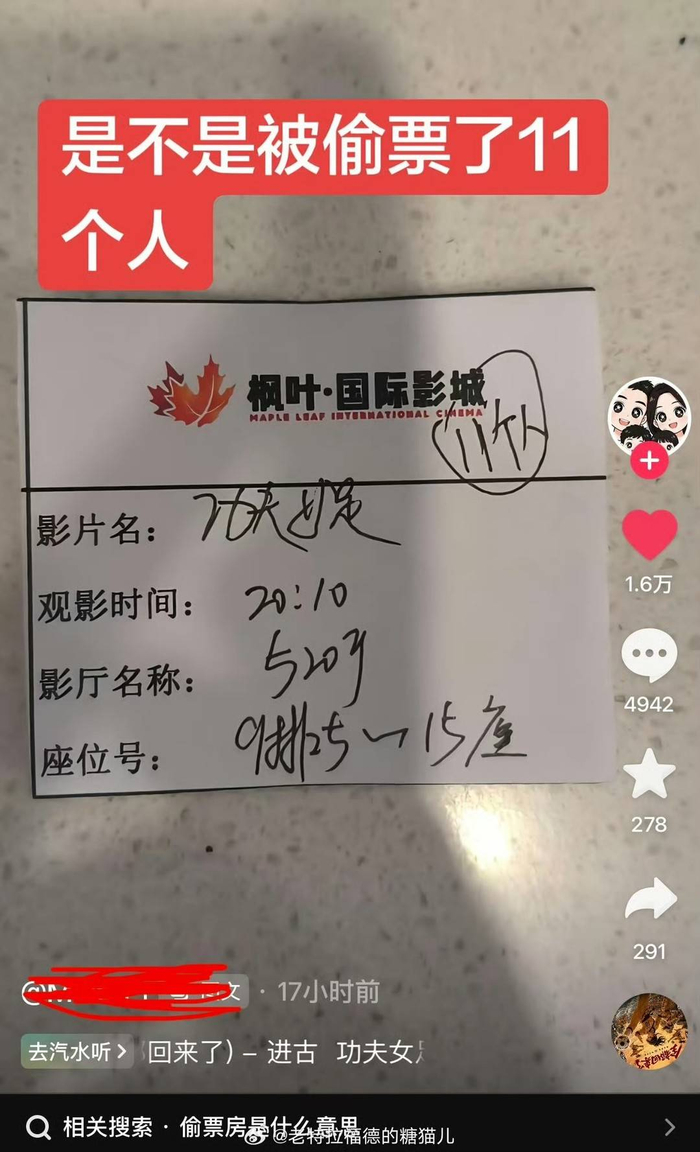 是不是被偷票了11
个人
枫叶·国际影城
MAPLE LEAF INTERNATIONAL CINEMA
11个人
影片名: 功夫女足
观影时间: 20:10
影厅名称: 5号厅
座位号: 9排5-15座
1.6万
4942
278
291
· 17小时前
去汽水听 回来了) - 进古 功夫女
相关搜索 · 偷票房是什么意思
@老特拉福德的糖猫儿